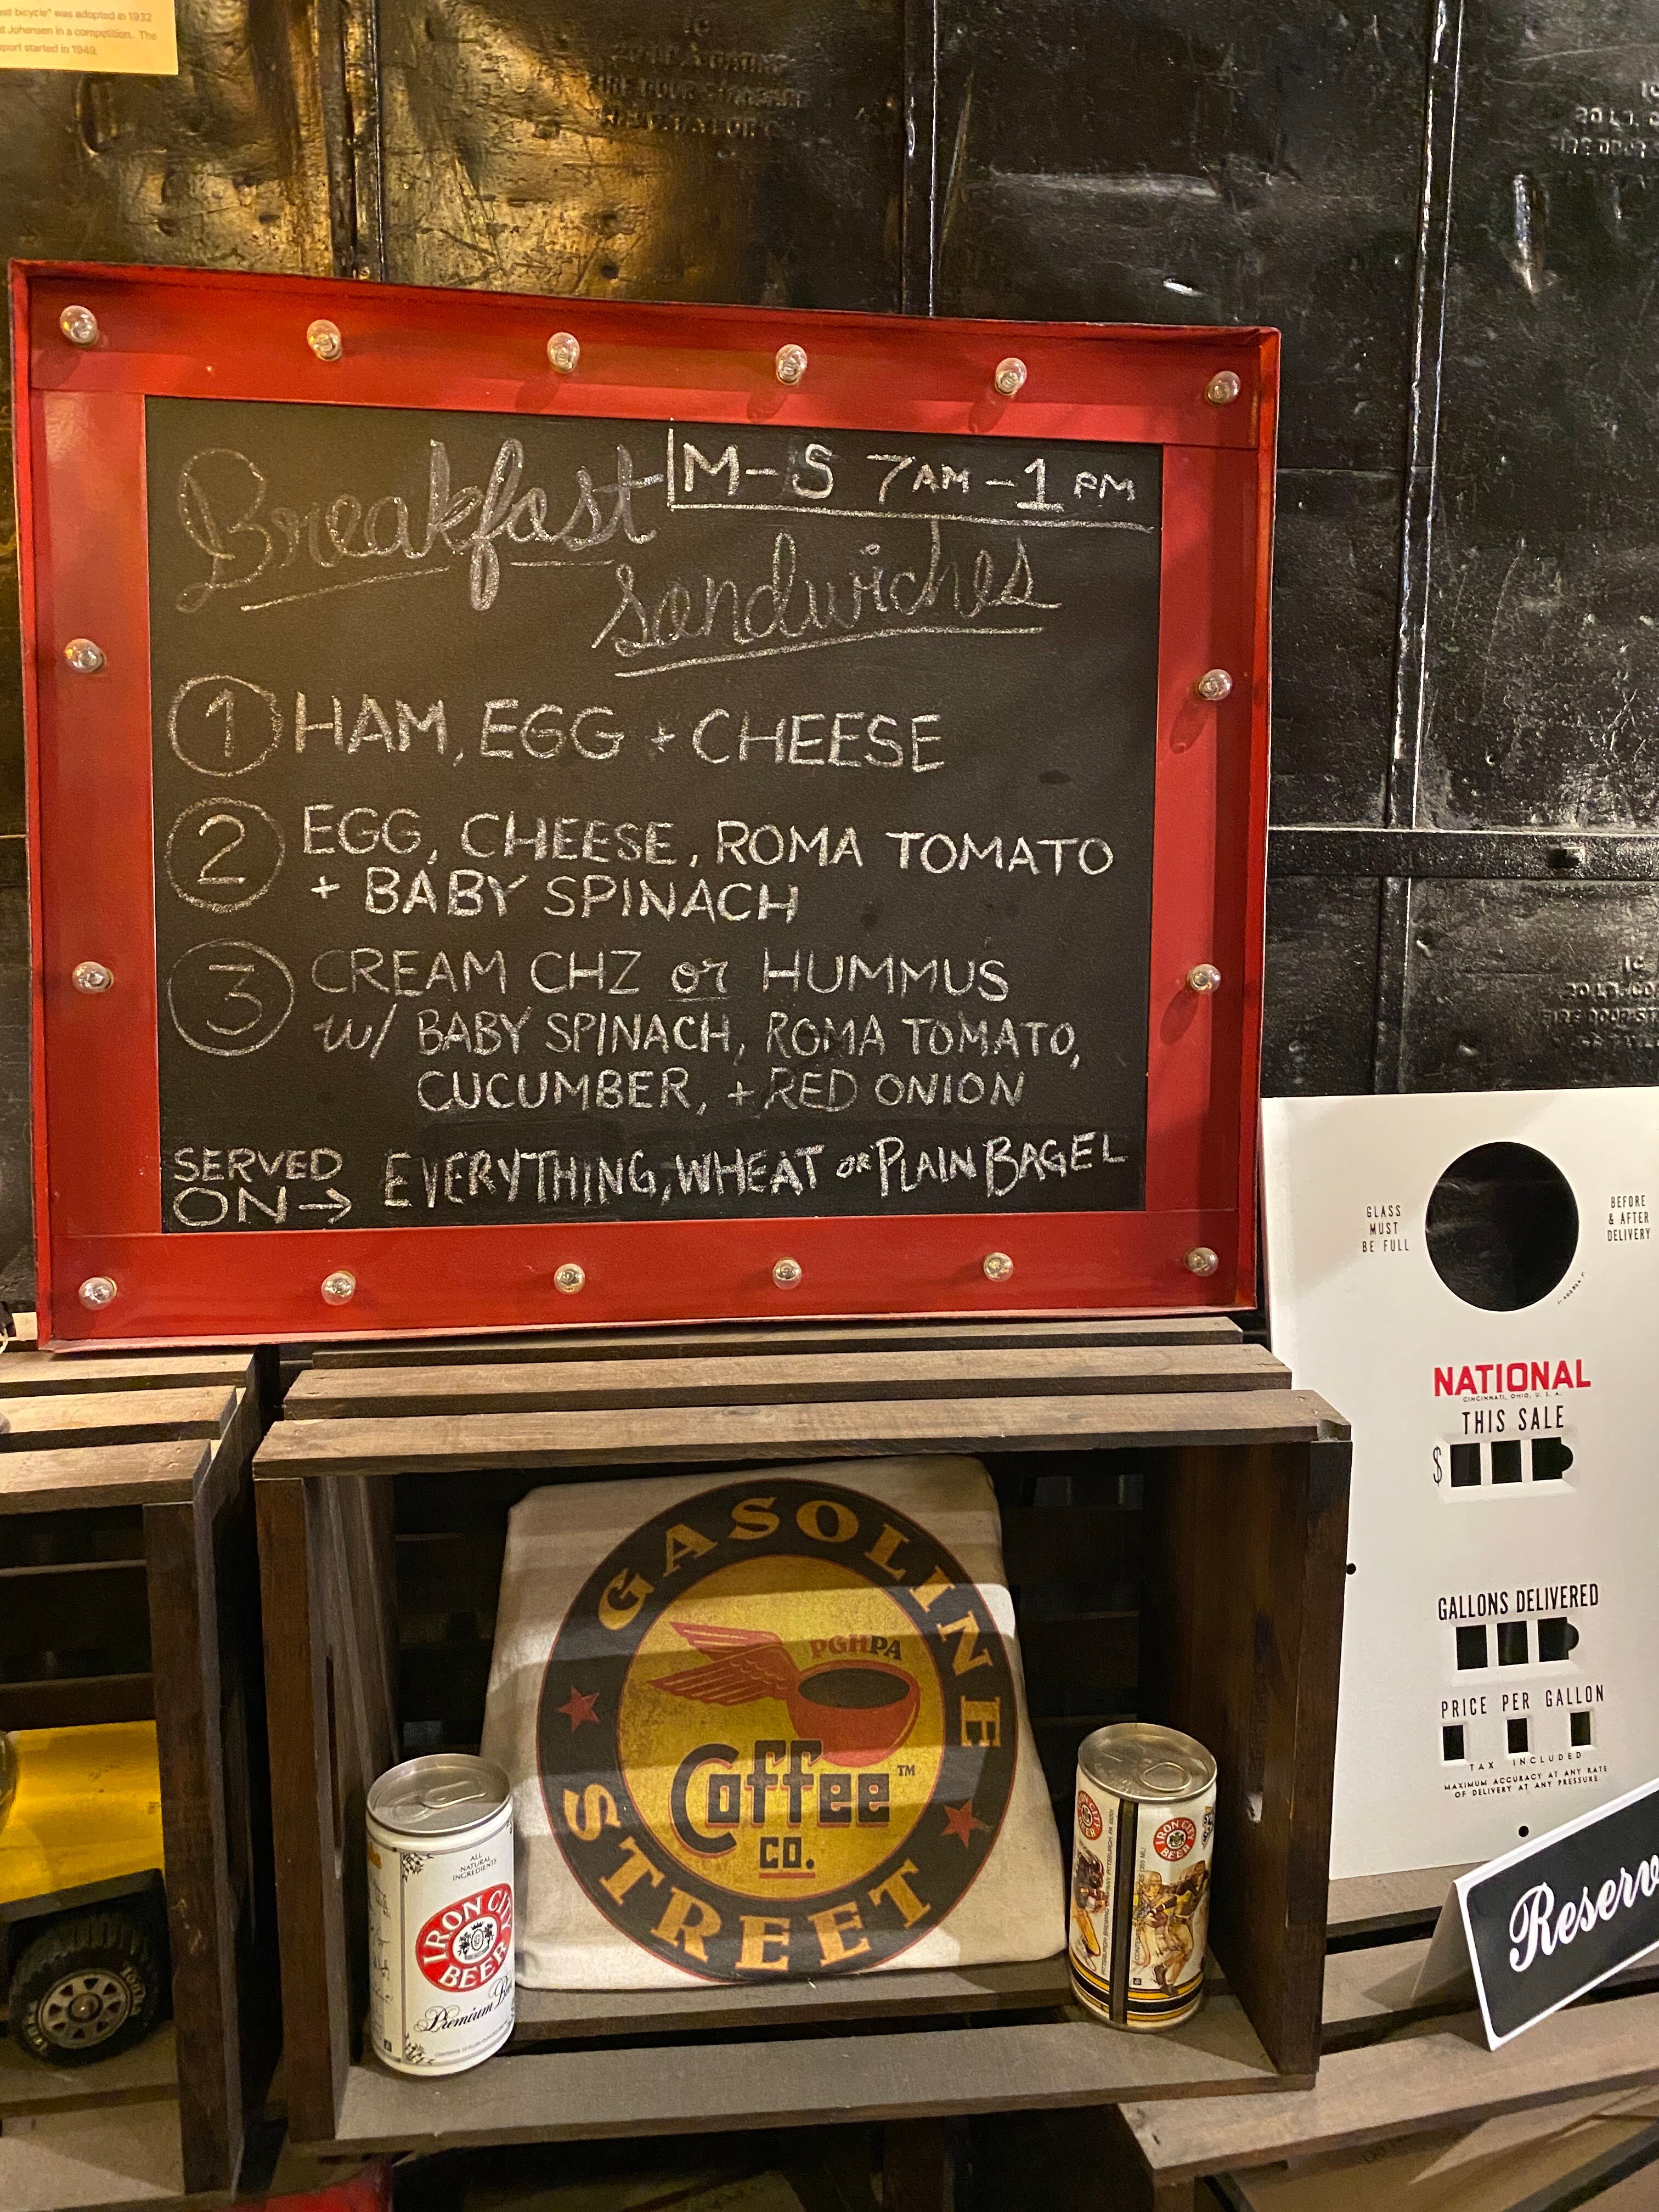 est bicycle" was adopted in 1932
t Johansen in a competition. The
port started in 1949.
Breakfast
M-S 7AM-1PM
Sandwiches
1 HAM, EGG + CHEESE
2 EGG, CHEESE, ROMA TOMATO
+ BABY SPINACH
3 CREAM CHZ or HUMMUS
w/ BABY SPINACH, ROMA TOMATO,
CUCUMBER, + RED ONION
SERVED
ON → EVERYTHING, WHEAT OR PLAIN BAGEL
GLASS
MUST
BE FULL
BEFORE
& AFTER
DELIVERY
NATIONAL
CINCINNATI, OHIO, U. S. A.
THIS SALE
$
GALLONS DELIVERED
PRICE PER GALLON
TAX INCLUDED
MAXIMUM ACCURACY AT ANY RATE
OF DELIVERY AT ANY PRESSURE
GASOLINE
PGHPA
Coffee™
CO.
STREET
ALL
NATURAL
INGREDIENTS
IRON CITY
BEER
Premium
IRON CITY
BEER
Reserv
Tonka